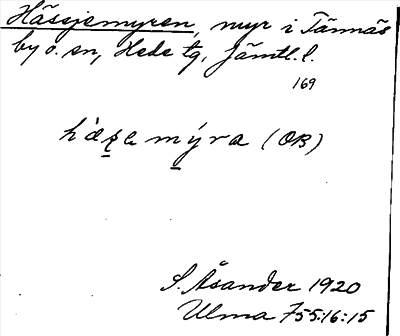 Hässjemyren, myr i Tännäs
by o. sn, Hede tg, Jämtl. l.
169
myra (OB)
S. Åsander 1920
Ulma 755:16:15